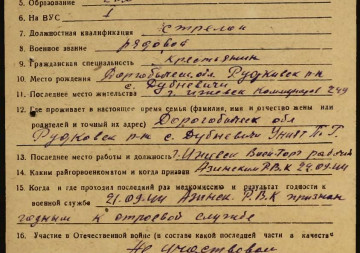 5. Образование
6. На ВУС I
7. Должностная квалификация стрелок
8. Военное звание рядовой
9. Гражданская специальность крестьянин
10. Место рождения Дрогобычск обл Рудковск р-н
с. Дубневичи
11. Последнее место жительства г. Ижевск Коммунаров 244
12. Где проживает в настоящее время семья (фамилия, имя и отчество жены или
родителей и точный их адрес) Дорогобычск обл
Рудковск р-н с. Дубневичи
13. Последнее место работы и должность? г. Ижевск Военторг рабочий
14. Каким райгорвоенкоматом и когда призван Азинским Р.В.К
15. Когда и где проходил последний раз медкомиссию и результат годности к
военной службе 21.09.44 Азинск. Р.В.К признан
годным к строевой службе
16. Участие в Отечественной войне (в составе какой последней части в качестве
Не участвовал